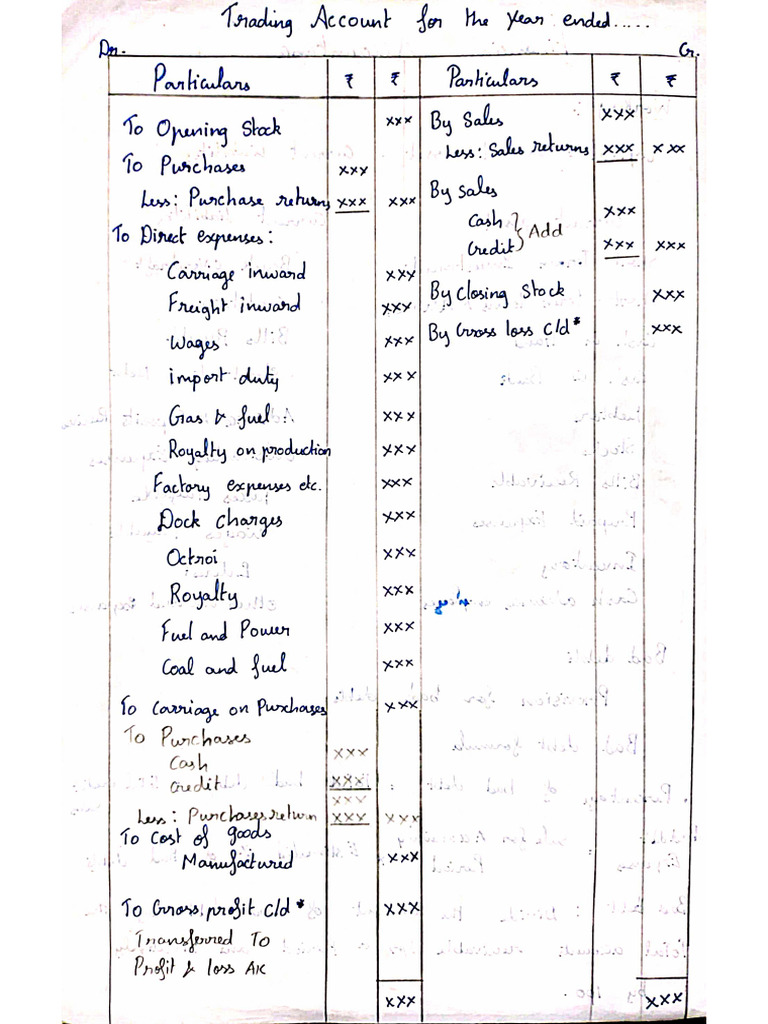 Trading Account for the year ended.....
Dr. Cr.
Particulars ₹ ₹ Particulars ₹ ₹
To Opening Stock xxx
To Purchases xxx
Less: Purchase returns xxx xxx
To Direct expenses:
Carriage inward xxx
Freight inward xxx
Wages xxx
import duty xxx
Gas & fuel xxx
Royalty on production xxx
Factory expenses etc. xxx
Dock charges xxx
Octroi xxx
Royalty xxx
Fuel and Power xxx
Coal and fuel xxx
To Carriage on Purchases xxx
To Purchases
Cash xxx
credit xxx
xxx
Less: Purchases return xxx xxx
To Cost of goods
Manufactured xxx
To Gross profit c/d* xxx
Transferred To
Profit & loss A/c
xxx
By Sales xxx
Less: Sales returns xxx xxx
By sales
Cash xxx
Add
Credit xxx xxx
By Closing Stock xxx
By Gross loss c/d* xxx
xxx